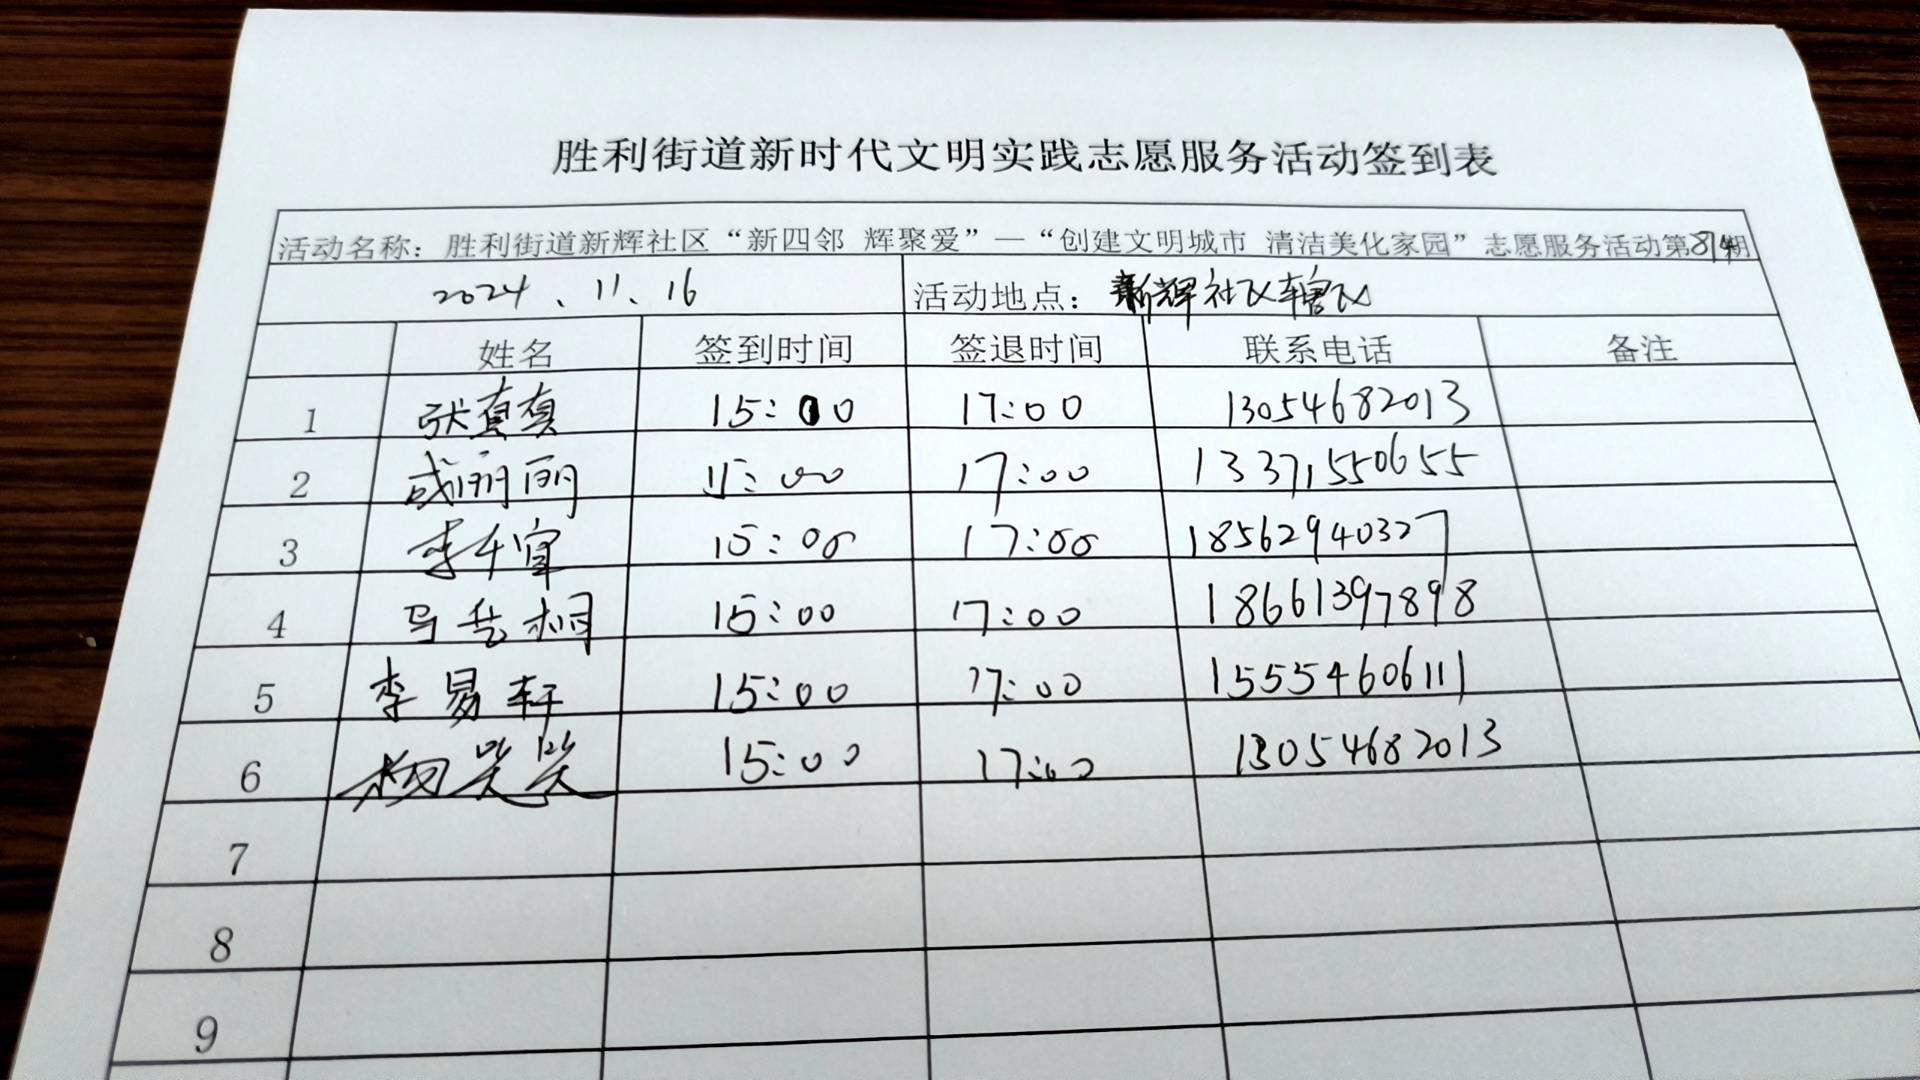 胜利街道新时代文明实践志愿服务活动签到表
活动名称：胜利街道新辉社区“新四邻 辉聚爱”—“创建文明城市 清洁美化家园”志愿服务活动第874期
2024、11、16 活动地点：新辉社区辖区
姓名 签到时间 签退时间 联系电话 备注
1 张真真 15:00 17:00 13054682013
2 成丽丽 15:00 17:00 13371550655
3 李千宣 15:00 17:00 18562940327
4 马艺桐 15:00 17:00 18661397898
5 李易轩 15:00 17:00 15554606111
6 杨笑笑 15:00 17:00 13054682013
7
8
9